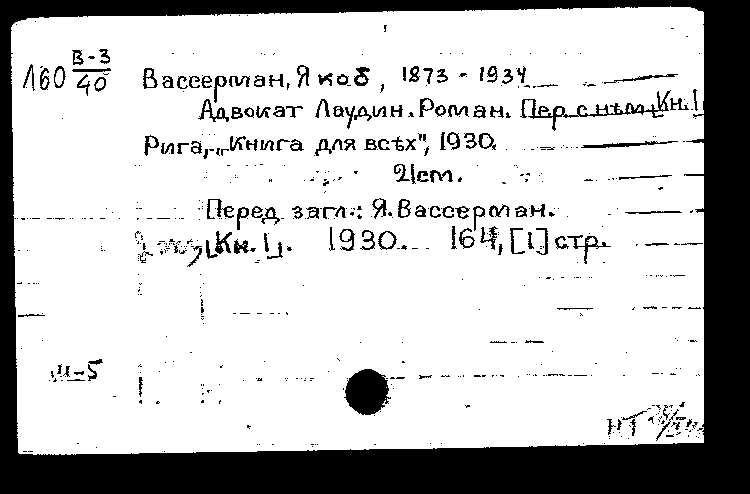 160 В-3/40 Вассерман, Якоб, 1873 - 1934
Адвокат Лаудин. Роман. Пер. с нѣм. [Кн. 1]
Рига, „Книга для всѣх", 1930.
21 cm.
Перед загл.: Я. Вассерман.
2 экз. [Кн. 1]. 1930. 164, [1] стр.
М-5
НТ